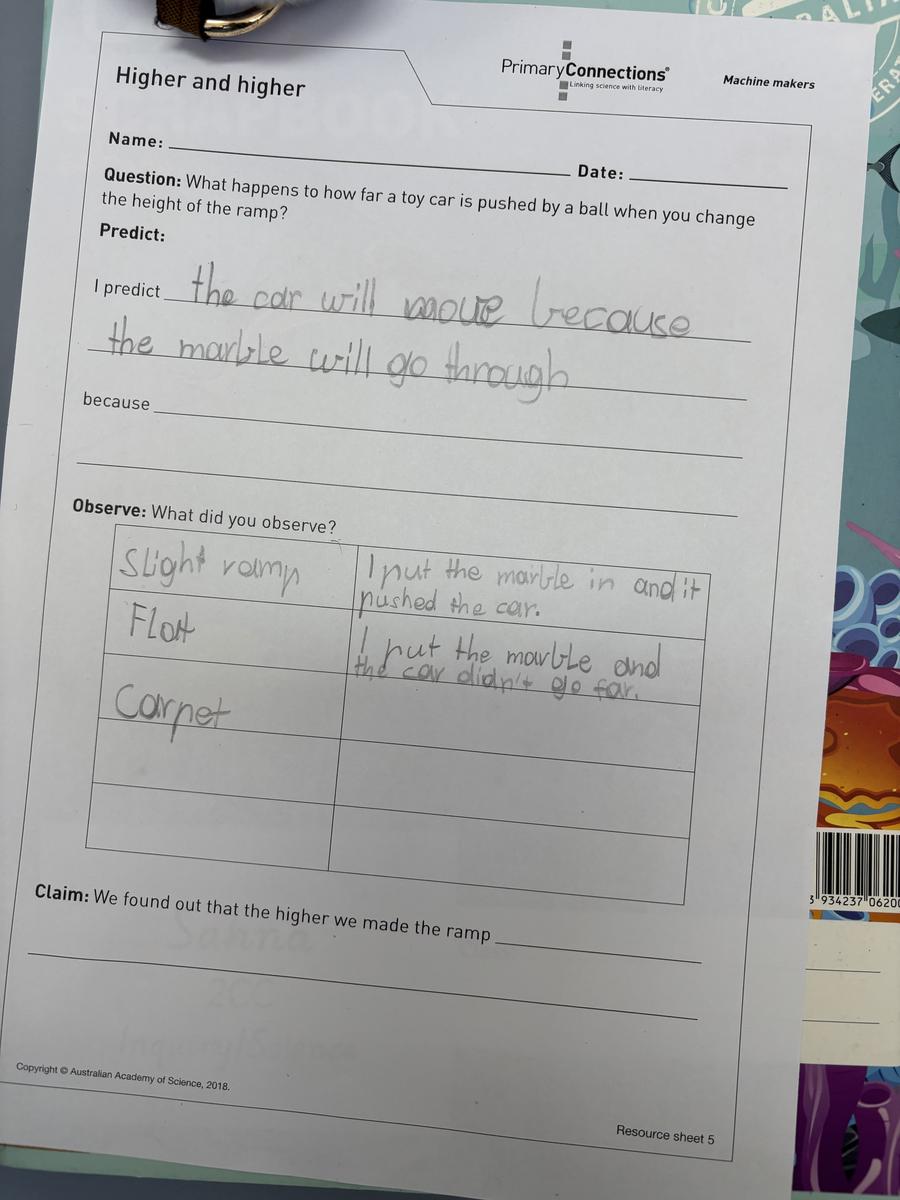 Higher and higher
PrimaryConnections®
Linking science with literacy
Machine makers
Name:
Date:
Question: What happens to how far a toy car is pushed by a ball when you change
the height of the ramp?
Predict:
I predict the car will move because
the marble will go through
because
Observe: What did you observe?
Slight ramp
I put the marble in and it
pushed the car.
Flat
I put the marble and
the car didn't go far.
Carpet
Claim: We found out that the higher we made the ramp
Copyright © Australian Academy of Science, 2018.
Resource sheet 5